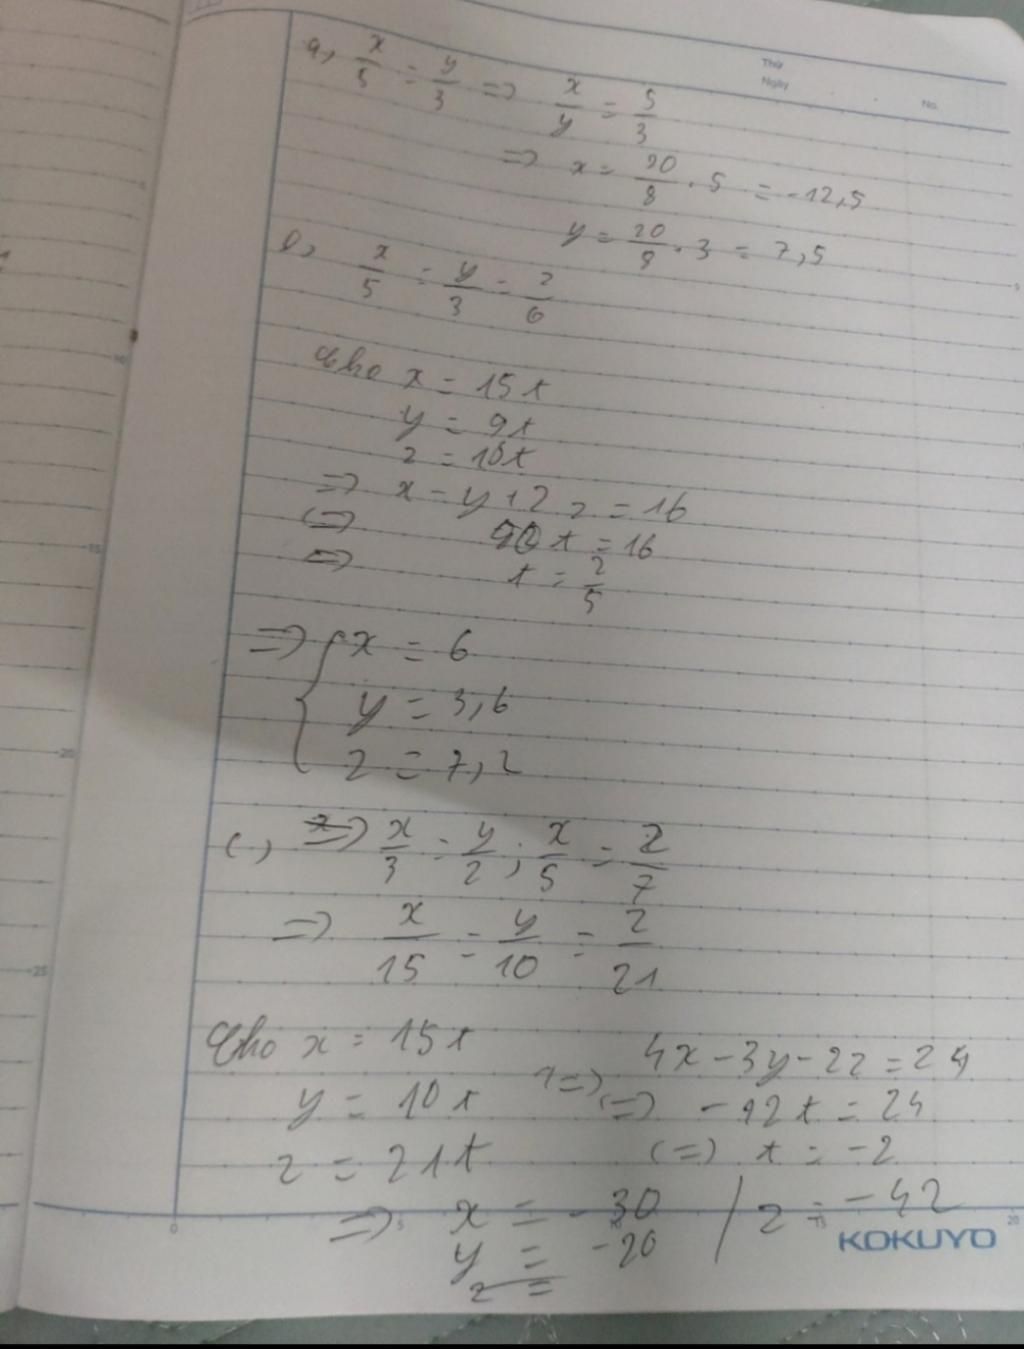 Thứ
Ngày
No.
a, x/5 = y/3 => x/y = 5/3
=> x = 20/8 . 5 = -12,5
y = 20/8 . 3 = 7,5
b, x/5 = y/3 = z/6
Cho x = 15t
y = 9t
z = 18t
=> x - y + 2z = 16
<=> t = 16
=> t = 2/5
=> { x = 6
y = 3,6
z = 7,2
c, => x/3 = y/2 ; x/5 = z/7
=> x/15 = y/10 = z/21
Cho x = 15t
y = 10t
z = 21t
=> 4x - 3y - 2z = 24
<=> -12t = 24
<=> t = -2
=> x = -30 / z = -42
y = -20
z =
5
10
15
20
25
0
5
15
20
KOKUYO